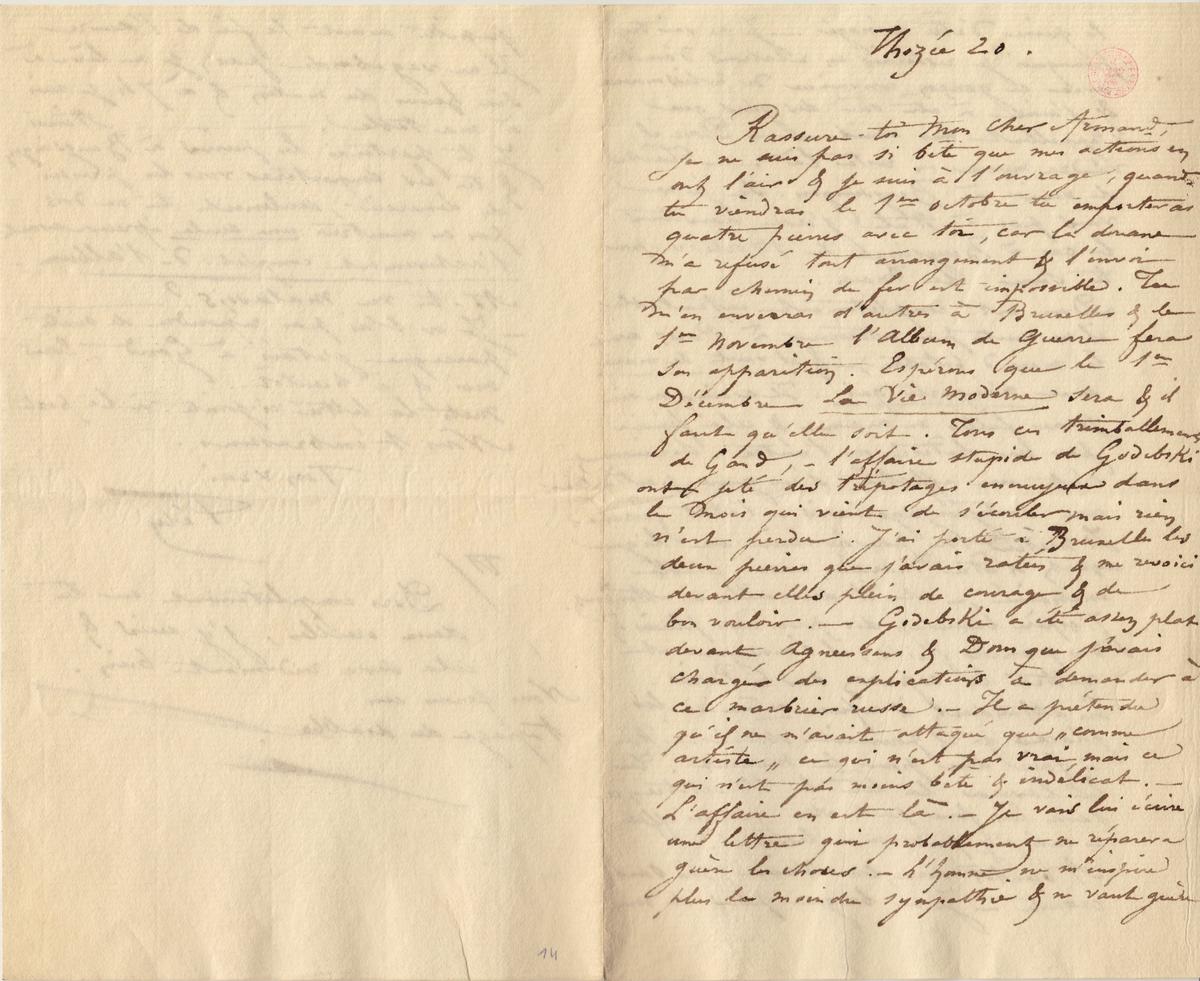 Thozée 20.
Rassure-toi mon cher Armand,
je ne suis pas si bête que mes actions en
ont l'air & je suis à l'ouvrage, quand
tu viendras le 1er octobre tu emporteras
quatre pierres avec toi, car la douane
m'a refusé tout arrangement & l'envoi
par chemin de fer est impossible. Tu
m'en enverras d'autres à Bruxelles & le
1er Novembre l'Album de Guerre fera
son apparition. Espérons que le 1er
Décembre La Vie Moderne sera & il
faut qu'elle soit. Tous ces trimballements
de Gand, - l'affaire stupide de Godebski
ont jeté des tripotages ennuyeux dans
le mois qui vient de s'écouler mais rien
n'est perdu. J'ai porté à Bruxelles les
deux pierres que j'avais ratées & me revoici
devant elles plein de courage & de
bon vouloir. — Godebski a été assez plat
devant Agneessens & Dom que j'avais
chargés des explications à demander à
ce marbrier russe. — Il a prétendu
qu'il ne m'avait attaqué que „comme
artiste„ ce qui n'est pas vrai mais ce
qui n'est pas moins bête & indélicat. —
L'affaire en est là. — Je vais lui écrire
une lettre qui probablement ne réparera
guère les choses. — L'homme ne m'inspire
plus la moindre sympathie & ne vaut guère
14